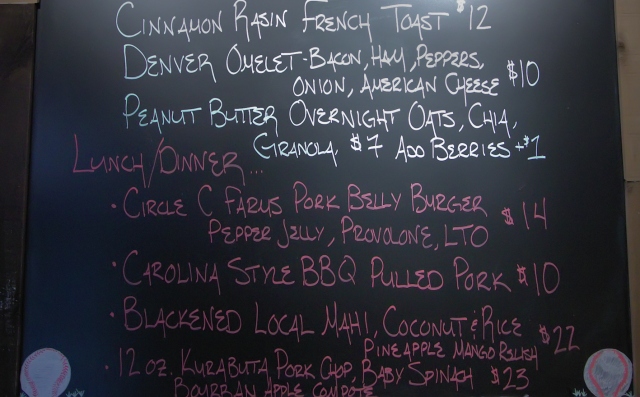 CINNAMON RASIN FRENCH TOAST $12
DENVER OMELET-BACON, HAM, PEPPERS,
ONION, AMERICAN CHEESE $10
PEANUT BUTTER OVERNIGHT OATS, CHIA,
GRANOLA, $7 ADD BERRIES +$1
LUNCH/DINNER...
• CIRCLE C FARMS PORK BELLY BURGER $14
PEPPER JELLY, PROVOLONE, LTO
• CAROLINA STYLE BBQ PULLED PORK $10
• BLACKENED LOCAL MAHI, COCONUT & RICE $22
PINEAPPLE MANGO RELISH
• 12 OZ. KURABUTA PORK CHOP, BABY SPINACH $23
BOURBAN APPLE COMPOTE